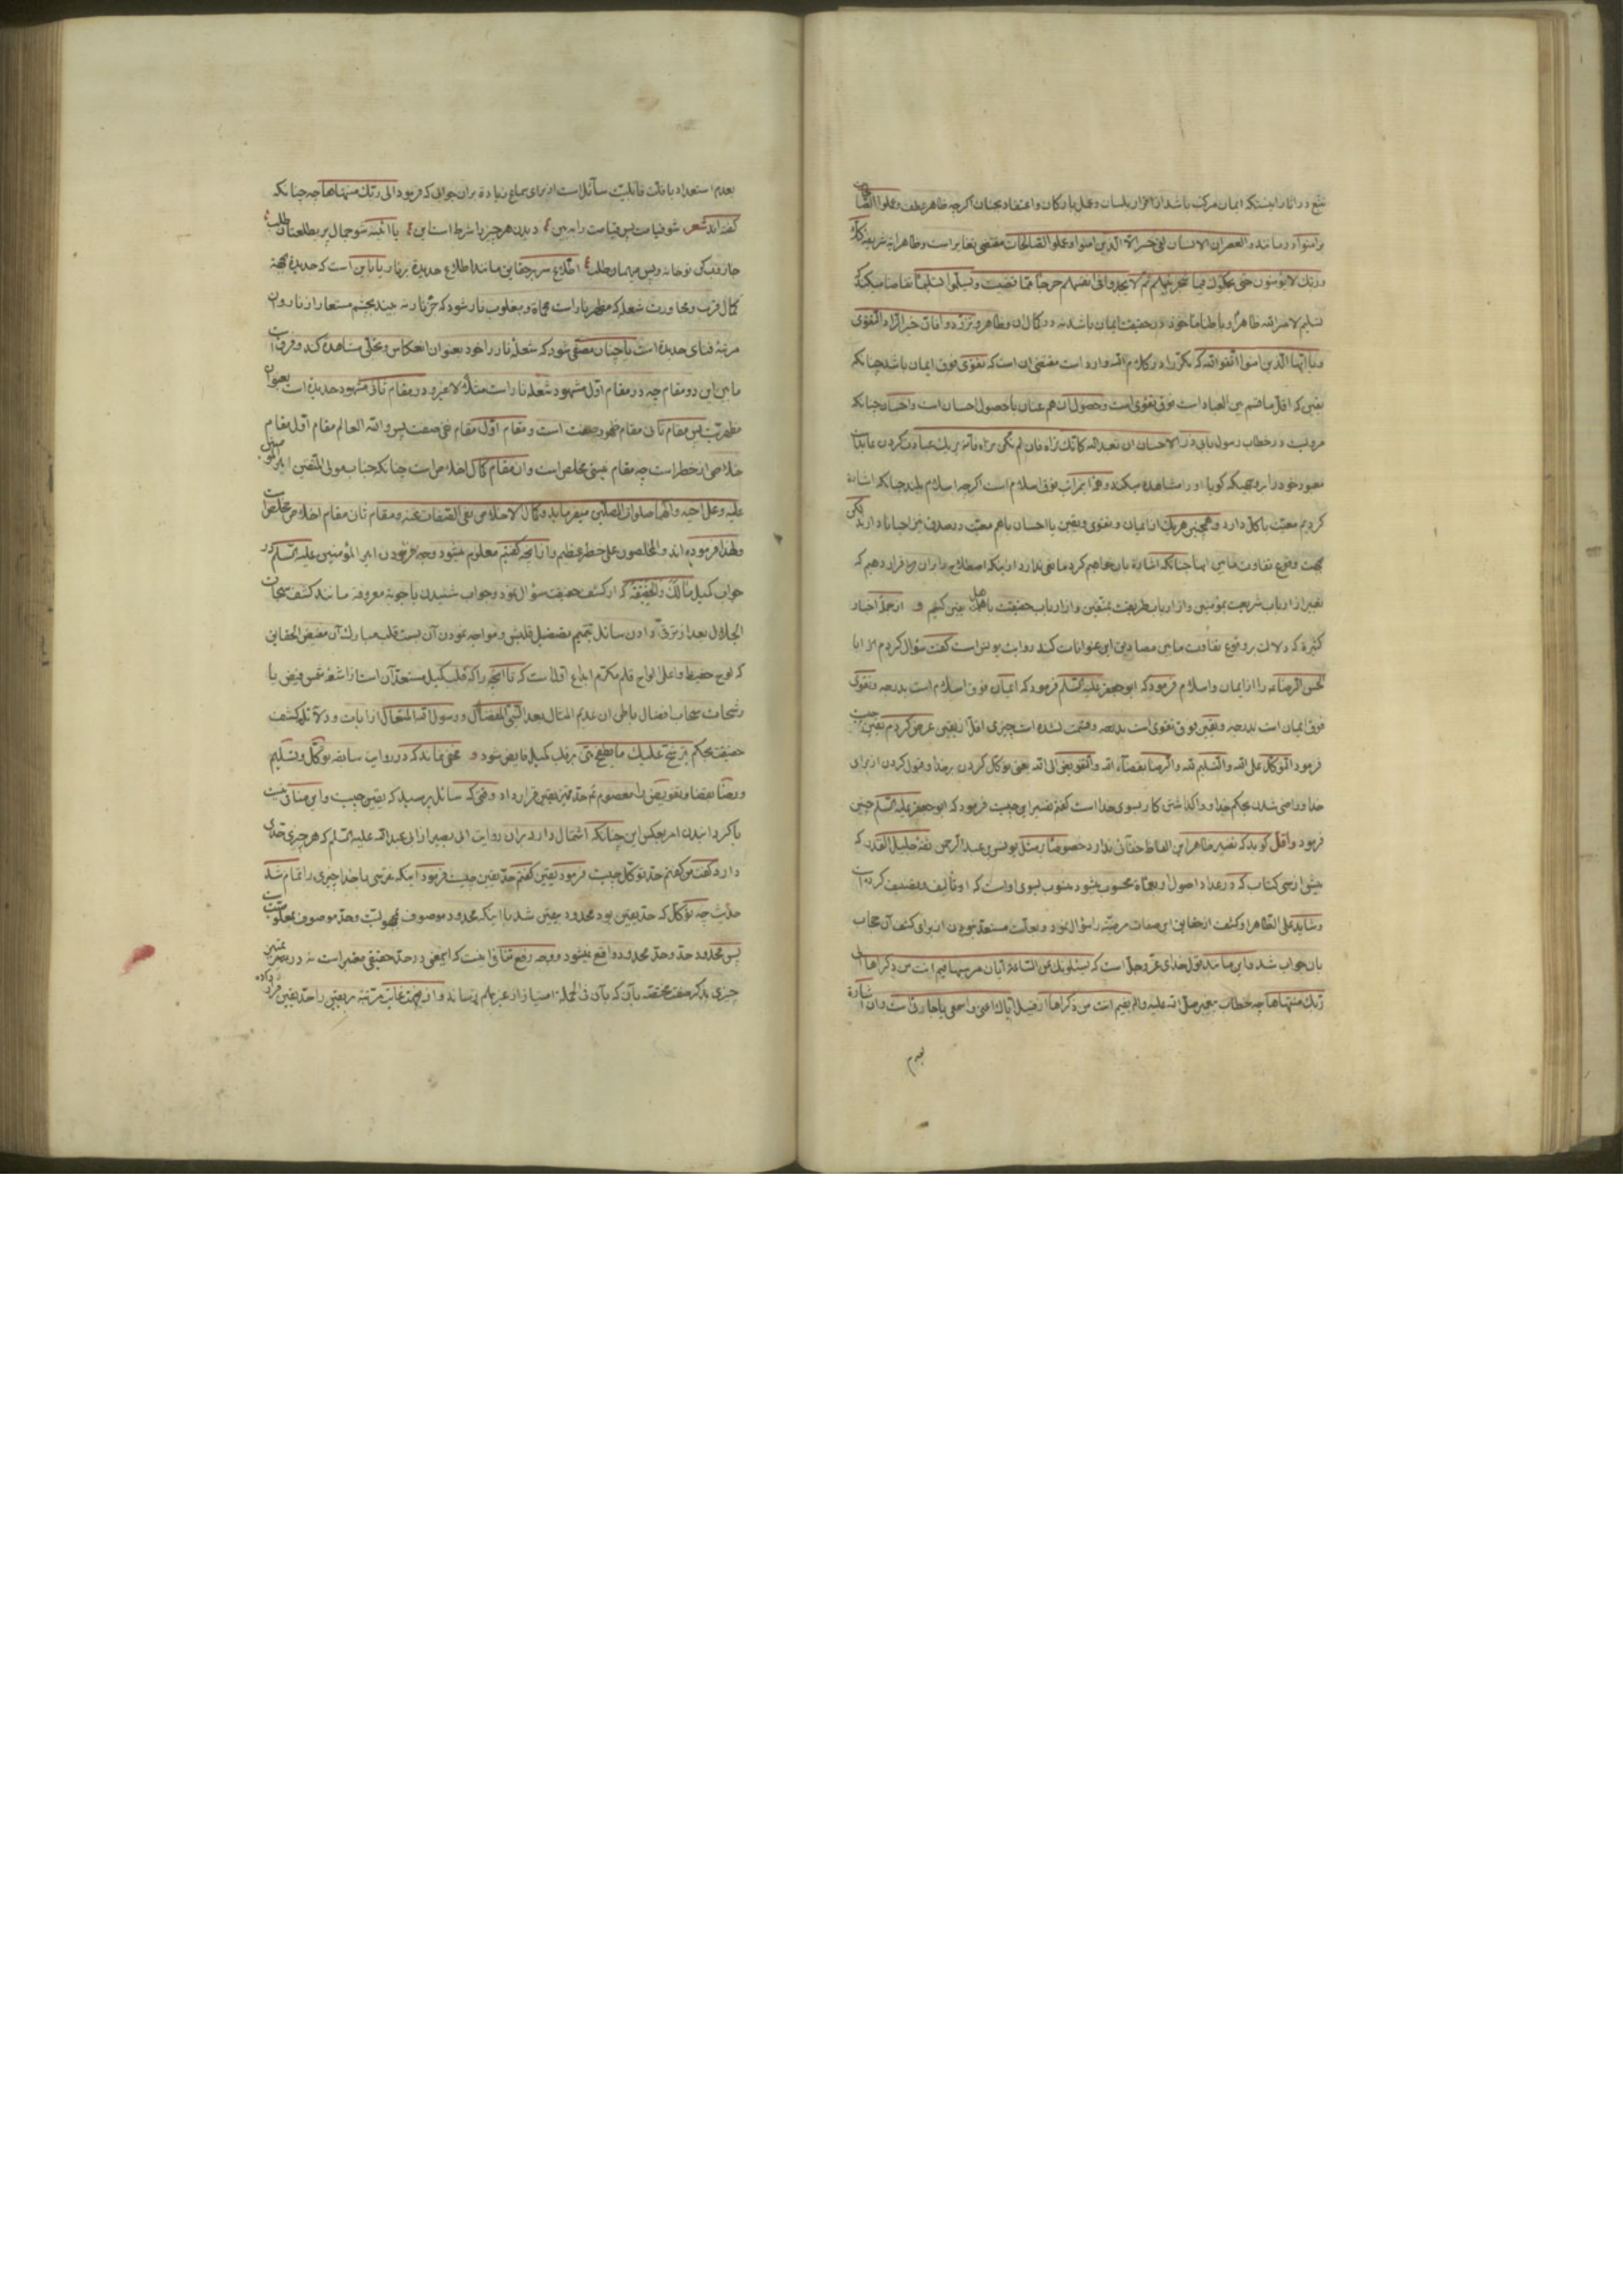 تتبع در اثار اینستکه ایمان مرکب باشد از اقرار بلسان و عمل بارکان و اعتقاد بجنان اکرچه ظاهر عطف و عملوا الصالحات
بر امنوا در مانند والعصر ان الانسان لفی خسر الا الذین امنوا و عملوا الصالحات مقتضی تغایر است و ظاهر ایه شریفه فلا
وربک لا یؤمنون حتی یحکموک فیما شجر بینهم ثم لا یجدوا فی انفسهم حرجا مما قضیت و یسلموا تسلیما تقاضا میکند که
تسلیم لامر الله ظاهرا و باطنا ماخوذ در حقیقت ایمان باشد نه در کمال ان و ظاهر و تزودوا فان خیر الزاد التقوی
و یا ایها الذین امنوا اتقوا الله که مکررا در کلام الله وارد است مقتضی ان است که تقوی فوق ایمان باشد چنانکه
یقین که اقل ما قسم بین العباد است فوق تقوی است و حصول ان هم عنان با حصول احسان است و احسان چنانکه
مرویست در خطاب رسول بابی ذر الاحسان ان تعبد الله کانک تراه فان لم تکن تراه فانه یریک عبادت کردن عابد است
معبود خود را بروجهیکه کویا او را مشاهده میکند و هو بمراتب فوق اسلام است اکرچه اسلام بلند چنانکه اشاره
کردیم معیت با کل دارد و همچنین هر یک از ایمان و تقوی و یقین با احسان با هم معیت در صدق نیز احیانا دارند لکن
بجهت وقوع تفاوت مابین انها چنانکه اشاره بان خواهیم کرد مانعی ندارد از اینکه اصطلاح را بر ان ما قرار دهیم که
تعبیر از ارباب شریعت بمؤمنین و از ارباب طریقت بمتقین و از ارباب حقیقت باهل یقین کنیم و از جمله اخبار
کثیره که دلالت بر وقوع تفاوت مابین مصادیق این عنوانات کند روایت یونس است کفت سؤال کردم از ابا
الحسن الرضا ع را از ایمان و اسلام فرمود که ابو جعفر علیه السلم فرمود که ایمان فوق اسلام است بدرجه و تقوی
فوق ایمان است بدرجه و یقین فوق تقوی است بدرجه و قسمت نشده است چیزی اقل از یقین عرض کردم یقین چیست
فرمود التوکل علی الله و التسلیم لله و الرضا بقضاء الله و التفویض الی الله یعنی توکل کردن بر خدا و قبول کردن از برای
خدا و راضی شدن بحکم خدا و واکذاشتن کار بسوی خدا است کفتم تفسیر این چیست فرمود که ابو جعفر علیه السلم چنین
فرمود و اقل کوید که تفسیر ظاهر این الفاظ خفائی ندارد خصوصا بر مثل یونس بن عبد الرحمن ثقه جلیل القدر که
بیش از سی کتاب که در عداد اصول اربعمأة محسوب میشود منسوب بسوی او است که او تألیف و تصنیف کرده است
و شاید علی الظاهر او کشف از حقایق این صفات مرضیه را سؤال نمود و بعلت مستعد نبودن از برای کشف آن مجاب
بان جواب شد و این مانند قول خدای عز و جل است که یسئلونک عن الساعة ایان مرسیها فیم انت من ذکراها الی
ربک منتهاها چه خطاب پیغمبر صلی الله علیه و اله بفیم انت من ذکراها از قبیل ایاک اعنی و اسمعی یا جاره است و ان اشاره
بعدم
بعدم استعداد یافت قابلیت سائل است از برای سماع زیاده بر ان جوابی که فرمود الی ربک منتهاها چه چنانکه
کفته اند شعر شو قیامت پس قیامت را ببین ؛ دیدن هر چیز را شرط است این ؛ یا ائینه شو جمال پریطلعتان طلب ؛
جاروب کن تو خانه و پس میهمان طلب ؛ اطلاع سر بر حقایق مانند اطلاع حدیده بر نار یا باین است که حدیده بجهة
کمال قرب و مجاورت شعله که مظهر نار است محماة و مغلوب نار شود که جز نار نه بیند بچشم مستعار از نار و ان
مرتبه فنای حدیده است یا چنان مصفی شود که شعله نار را خود بعنوان انعکاس و تجلی مشاهده کند و فرق است
مابین این دو مقام چه در مقام اول مشهود شعله نار است مثلا لا غیر و در مقام ثانی مشهود حدیده است بعنوان
مظهریت پس مقام ثانی مقام ظهور صفت است و مقام اول مقام نفی صفت پس و الله العالم مقام اول مقام
خلاصی از خطر است چه مقام عینی مخلص است و ان مقام کمال اخلاص است چنانکه جناب مولی المتقین امیر المؤمنین
علیه و علی اخیه و الهما صلوات المصلین میفرماید و کمال الاخلاص نفی الصفات عنه و مقام ثانی مقام اخلاص مخلص است
و لهذا فرموده اند و المخلصون علی خطر عظیم و از انچه کفتیم معلوم میشود وجه فرمودن امیر المؤمنین علیه السلم در
جواب کمیل مالک و الحقیقة که از کشف حقیقت سؤال نمود و جواب شنیدن باجوبه معروفه مانند کشف سبحات
الجلال بعد از ترقی دادن سائل بتمیم تصقیل قلبش و مواجه نمودن آن بسمت قلب مبارک آن مفیض الحقایق
که لوح حفیظ و اعلی الواح قلم مکرم ابداع اول است که تا انچه را که قلب کمیل مستعد آن است از اشعه شمس فیض یا
رشحات سحاب افضال باطن ان عدیم المثال بعد النبی المفضال و رسول الله المتعال از ایات و دلائل کشف
حقیقت بحکم یرشح علیک ما یطفح منی بر قلب کمیل فایض شود و مخفی نماند که در روایت سابقه توکل و تسلیم
و رضا بقضا و تفویض را معصوم ع حد ممیز یقین قرار داد وقتی که سائل پرسید که یقین چیست و این منافی نیست
با کردانیدن امر بعکس این چنانکه اشتمال دارد بر ان روایت ابی بصیر از ابی عبد الله علیه السلم که هر چیزی حدی
دارد کفت من کفتم حد توکل چیست فرمود یقین کفتم حد یقین چیست فرمود اینکه نترسی با خدا چیزی را تمام شد
حدیث چه توکل که حد یقین بود محدود بیقین شد با اینکه محدود موصوف بمجهولیت و حد موصوف بمعلومیت است
پس محدود حد و حد محدود واقع نمیشود و وجه رفع تنافی اینست که اینمعنی در حد حقیقی معتبر است نه در تمییز
چیزی بذکر صفت مختصه بان که بآن فی الجمله امتیاز از غیر بهم رساند و از اینجهت غایت مرتبه یقین را حد یقین قرار داده